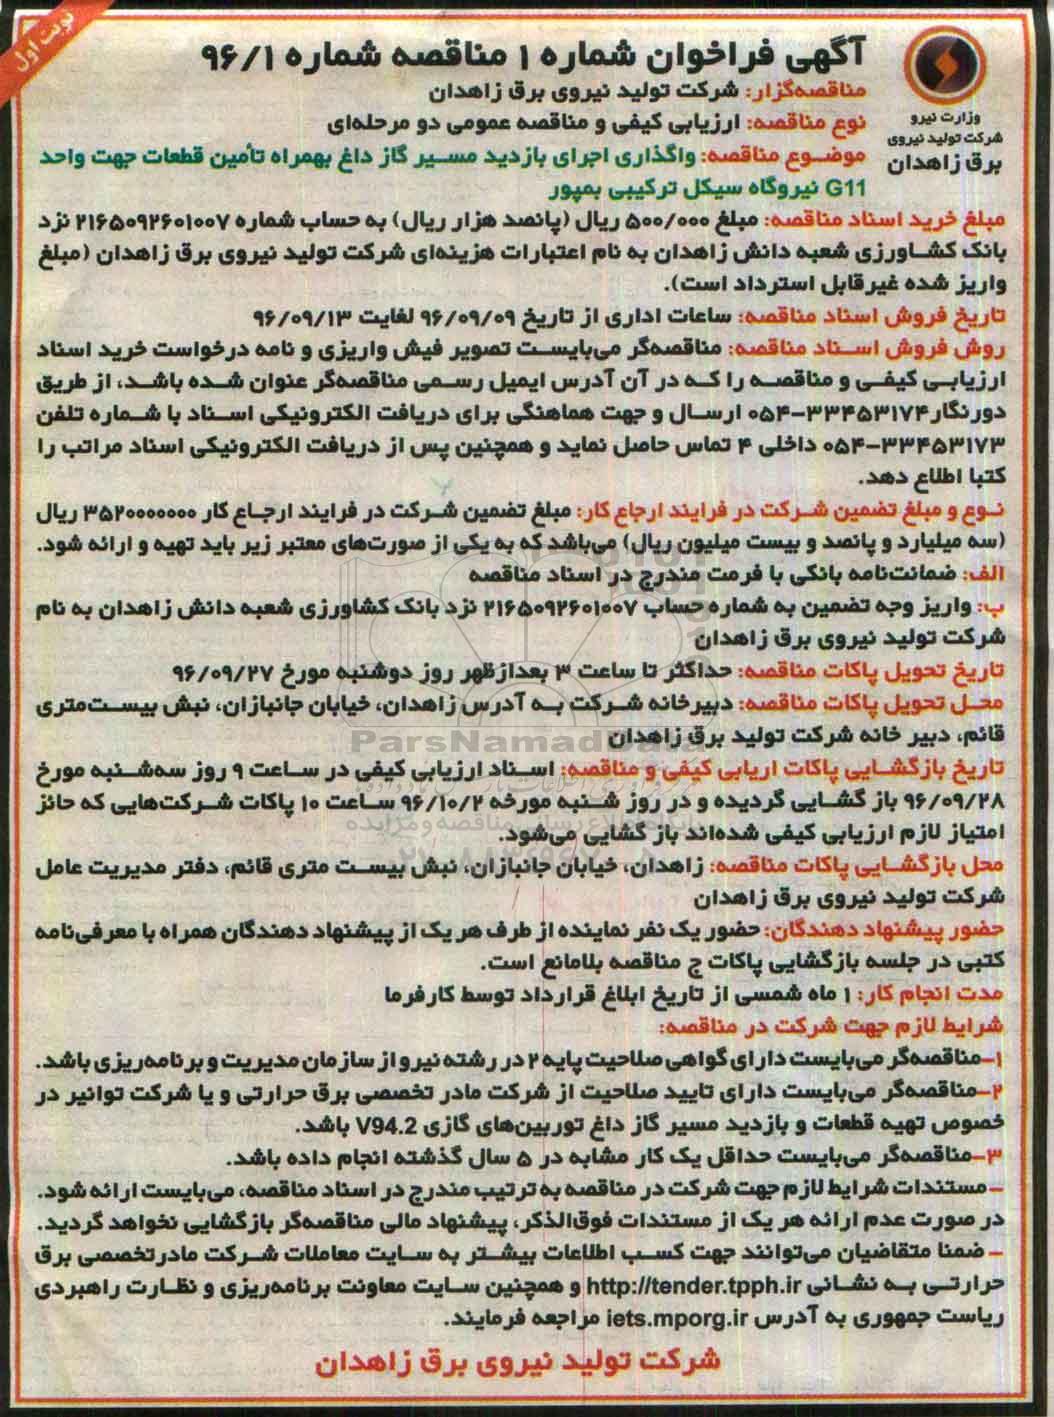 نوبت اول
آگهی فراخوان شماره ۱ مناقصه شماره ۹۶/۱
وزارت نیرو
شرکت تولید نیروی
برق زاهدان
مناقصه‌گزار: شرکت تولید نیروی برق زاهدان
نوع مناقصه: ارزیابی کیفی و مناقصه عمومی دو مرحله‌ای
موضوع مناقصه: واگذاری اجرای بازدید مسیر گاز داغ بهمراه تأمین قطعات جهت واحد
G11 نیروگاه سیکل ترکیبی بمپور
مبلغ خرید اسناد مناقصه: مبلغ ۵۰۰/۰۰۰ ریال (پانصد هزار ریال) به حساب شماره ۲۱۶۵۰۹۲۶۰۱۰۰۷ نزد
بانک کشاورزی شعبه دانش زاهدان به نام اعتبارات هزینه‌ای شرکت تولید نیروی برق زاهدان (مبلغ
واریز شده غیرقابل استرداد است).
تاریخ فروش اسناد مناقصه: ساعات اداری از تاریخ ۹۶/۰۹/۰۹ لغایت ۹۶/۰۹/۱۳
روش فروش اسناد مناقصه: مناقصه‌گر می‌بایست تصویر فیش واریزی و نامه درخواست خرید اسناد
ارزیابی کیفی و مناقصه را که در آن آدرس ایمیل رسمی مناقصه‌گر عنوان شده باشد، از طریق
دورنگار ۳۳۴۵۳۱۷۴-۰۵۴ ارسال و جهت هماهنگی برای دریافت الکترونیکی اسناد با شماره تلفن
۳۳۴۵۳۱۷۳-۰۵۴ داخلی ۴ تماس حاصل نماید و همچنین پس از دریافت الکترونیکی اسناد مراتب را
کتبا اطلاع دهد.
نوع و مبلغ تضمین شرکت در فرایند ارجاع کار: مبلغ تضمین شرکت در فرایند ارجاع کار ۳۵۲۰۰۰۰۰۰۰ ریال
(سه میلیارد و پانصد و بیست میلیون ریال) می‌باشد که به یکی از صورت‌های معتبر زیر باید تهیه و ارائه شود.
الف: ضمانت‌نامه بانکی با فرمت مندرج در اسناد مناقصه
ب: واریز وجه تضمین به شماره حساب ۲۱۶۵۰۹۲۶۰۱۰۰۷ نزد بانک کشاورزی شعبه دانش زاهدان به نام
شرکت تولید نیروی برق زاهدان
تاریخ تحویل پاکات مناقصه: حداکثر تا ساعت ۳ بعدازظهر روز دوشنبه مورخ ۹۶/۰۹/۲۷
محل تحویل پاکات مناقصه: دبیرخانه شرکت به آدرس زاهدان، خیابان جانبازان، نبش بیست‌متری
قائم، دبیر خانه شرکت تولید برق زاهدان
ParsNamadData
تاریخ بازگشایی پاکات اریابی کیفی و مناقصه: اسناد ارزیابی کیفی در ساعت ۹ روز سه‌شنبه مورخ
۹۶/۰۹/۲۸ باز گشایی گردیده و در روز شنبه مورخه ۹۶/۱۰/۲ ساعت ۱۰ پاکات شرکت‌هایی که حائز
امتیاز لازم ارزیابی کیفی شده‌اند باز گشایی می‌شود.
محل بازگشایی پاکات مناقصه: زاهدان، خیابان جانبازان، نبش بیست متری قائم، دفتر مدیریت عامل
شرکت تولید نیروی برق زاهدان
حضور پیشنهاد دهندگان: حضور یک نفر نماینده از طرف هر یک از پیشنهاد دهندگان همراه با معرفی‌نامه
کتبی در جلسه بازگشایی پاکات ج مناقصه بلامانع است.
مدت انجام کار: ۱ ماه شمسی از تاریخ ابلاغ قرارداد توسط کارفرما
شرایط لازم جهت شرکت در مناقصه:
۱-مناقصه‌گر می‌بایست دارای گواهی صلاحیت پایه ۲ در رشته نیرو از سازمان مدیریت و برنامه‌ریزی باشد.
۲-مناقصه‌گر می‌بایست دارای تایید صلاحیت از شرکت مادر تخصصی برق حرارتی و یا شرکت توانیر در
خصوص تهیه قطعات و بازدید مسیر گاز داغ توربین‌های گازی V94.2 باشد.
۳-مناقصه‌گر می‌بایست حداقل یک کار مشابه در ۵ سال گذشته انجام داده باشد.
- مستندات شرایط لازم جهت شرکت در مناقصه به ترتیب مندرج در اسناد مناقصه، می‌بایست ارائه شود.
در صورت عدم ارائه هر یک از مستندات فوق‌الذکر، پیشنهاد مالی مناقصه‌گر بازگشایی نخواهد گردید.
- ضمنا متقاضیان می‌توانند جهت کسب اطلاعات بیشتر به سایت معاملات شرکت مادرتخصصی برق
حرارتی به نشانی http://tender.tpph.ir و همچنین سایت معاونت برنامه‌ریزی و نظارت راهبردی
ریاست جمهوری به آدرس iets.mporg.ir مراجعه فرمایند.
شرکت تولید نیروی برق زاهدان